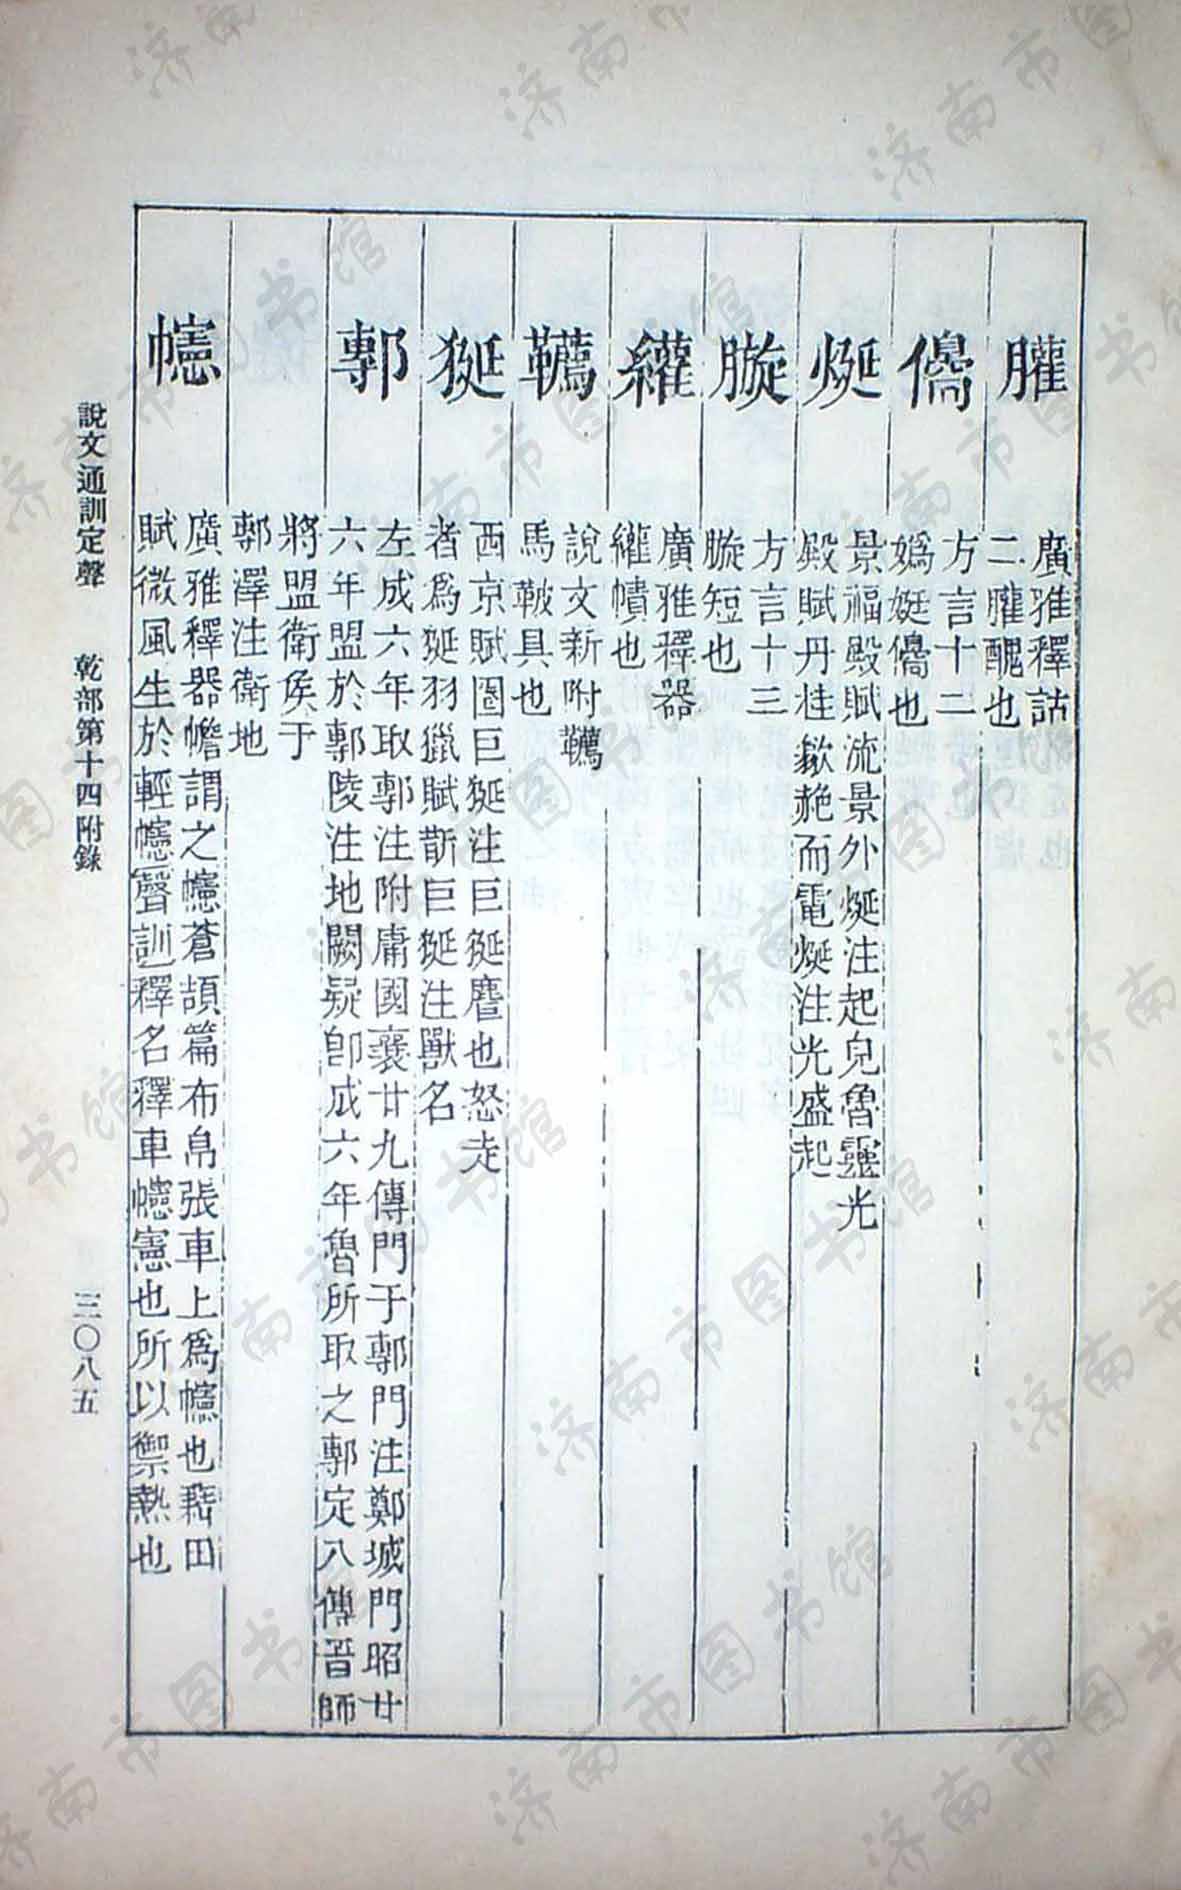 臛
廣雅釋詁
二臛醜也
僪
方言十二
嬀娗僪也
烻
景福殿賦流景外烻注起皃魯靈光
殿賦丹柱歙赩而電烻注光盛起
䁢
方言十三
䁢短也
纙
廣雅釋器
纙幘也
韉
說文新附韉
馬鞁具也
狿
西京賦圈巨狿注巨狿麠也怒走
者爲狿羽獵賦斮巨狿注獸名
鄟
左成六年取鄟注附庸國襄廿九傳門于鄟門注鄭城門昭廿
六年盟於鄟陵注地闕疑卽成六年魯所取之鄟定八傳晉師
將盟衛侯于
鄟澤注衛地
幰
廣雅釋器幨謂之幰蒼頡篇布帛張車上爲幰也耤田
賦微風生於輕幰聲訓釋名釋車幰憲也所以禦熱也
說文通訓定聲　乾部第十四附錄　三〇八五
济南市图书馆